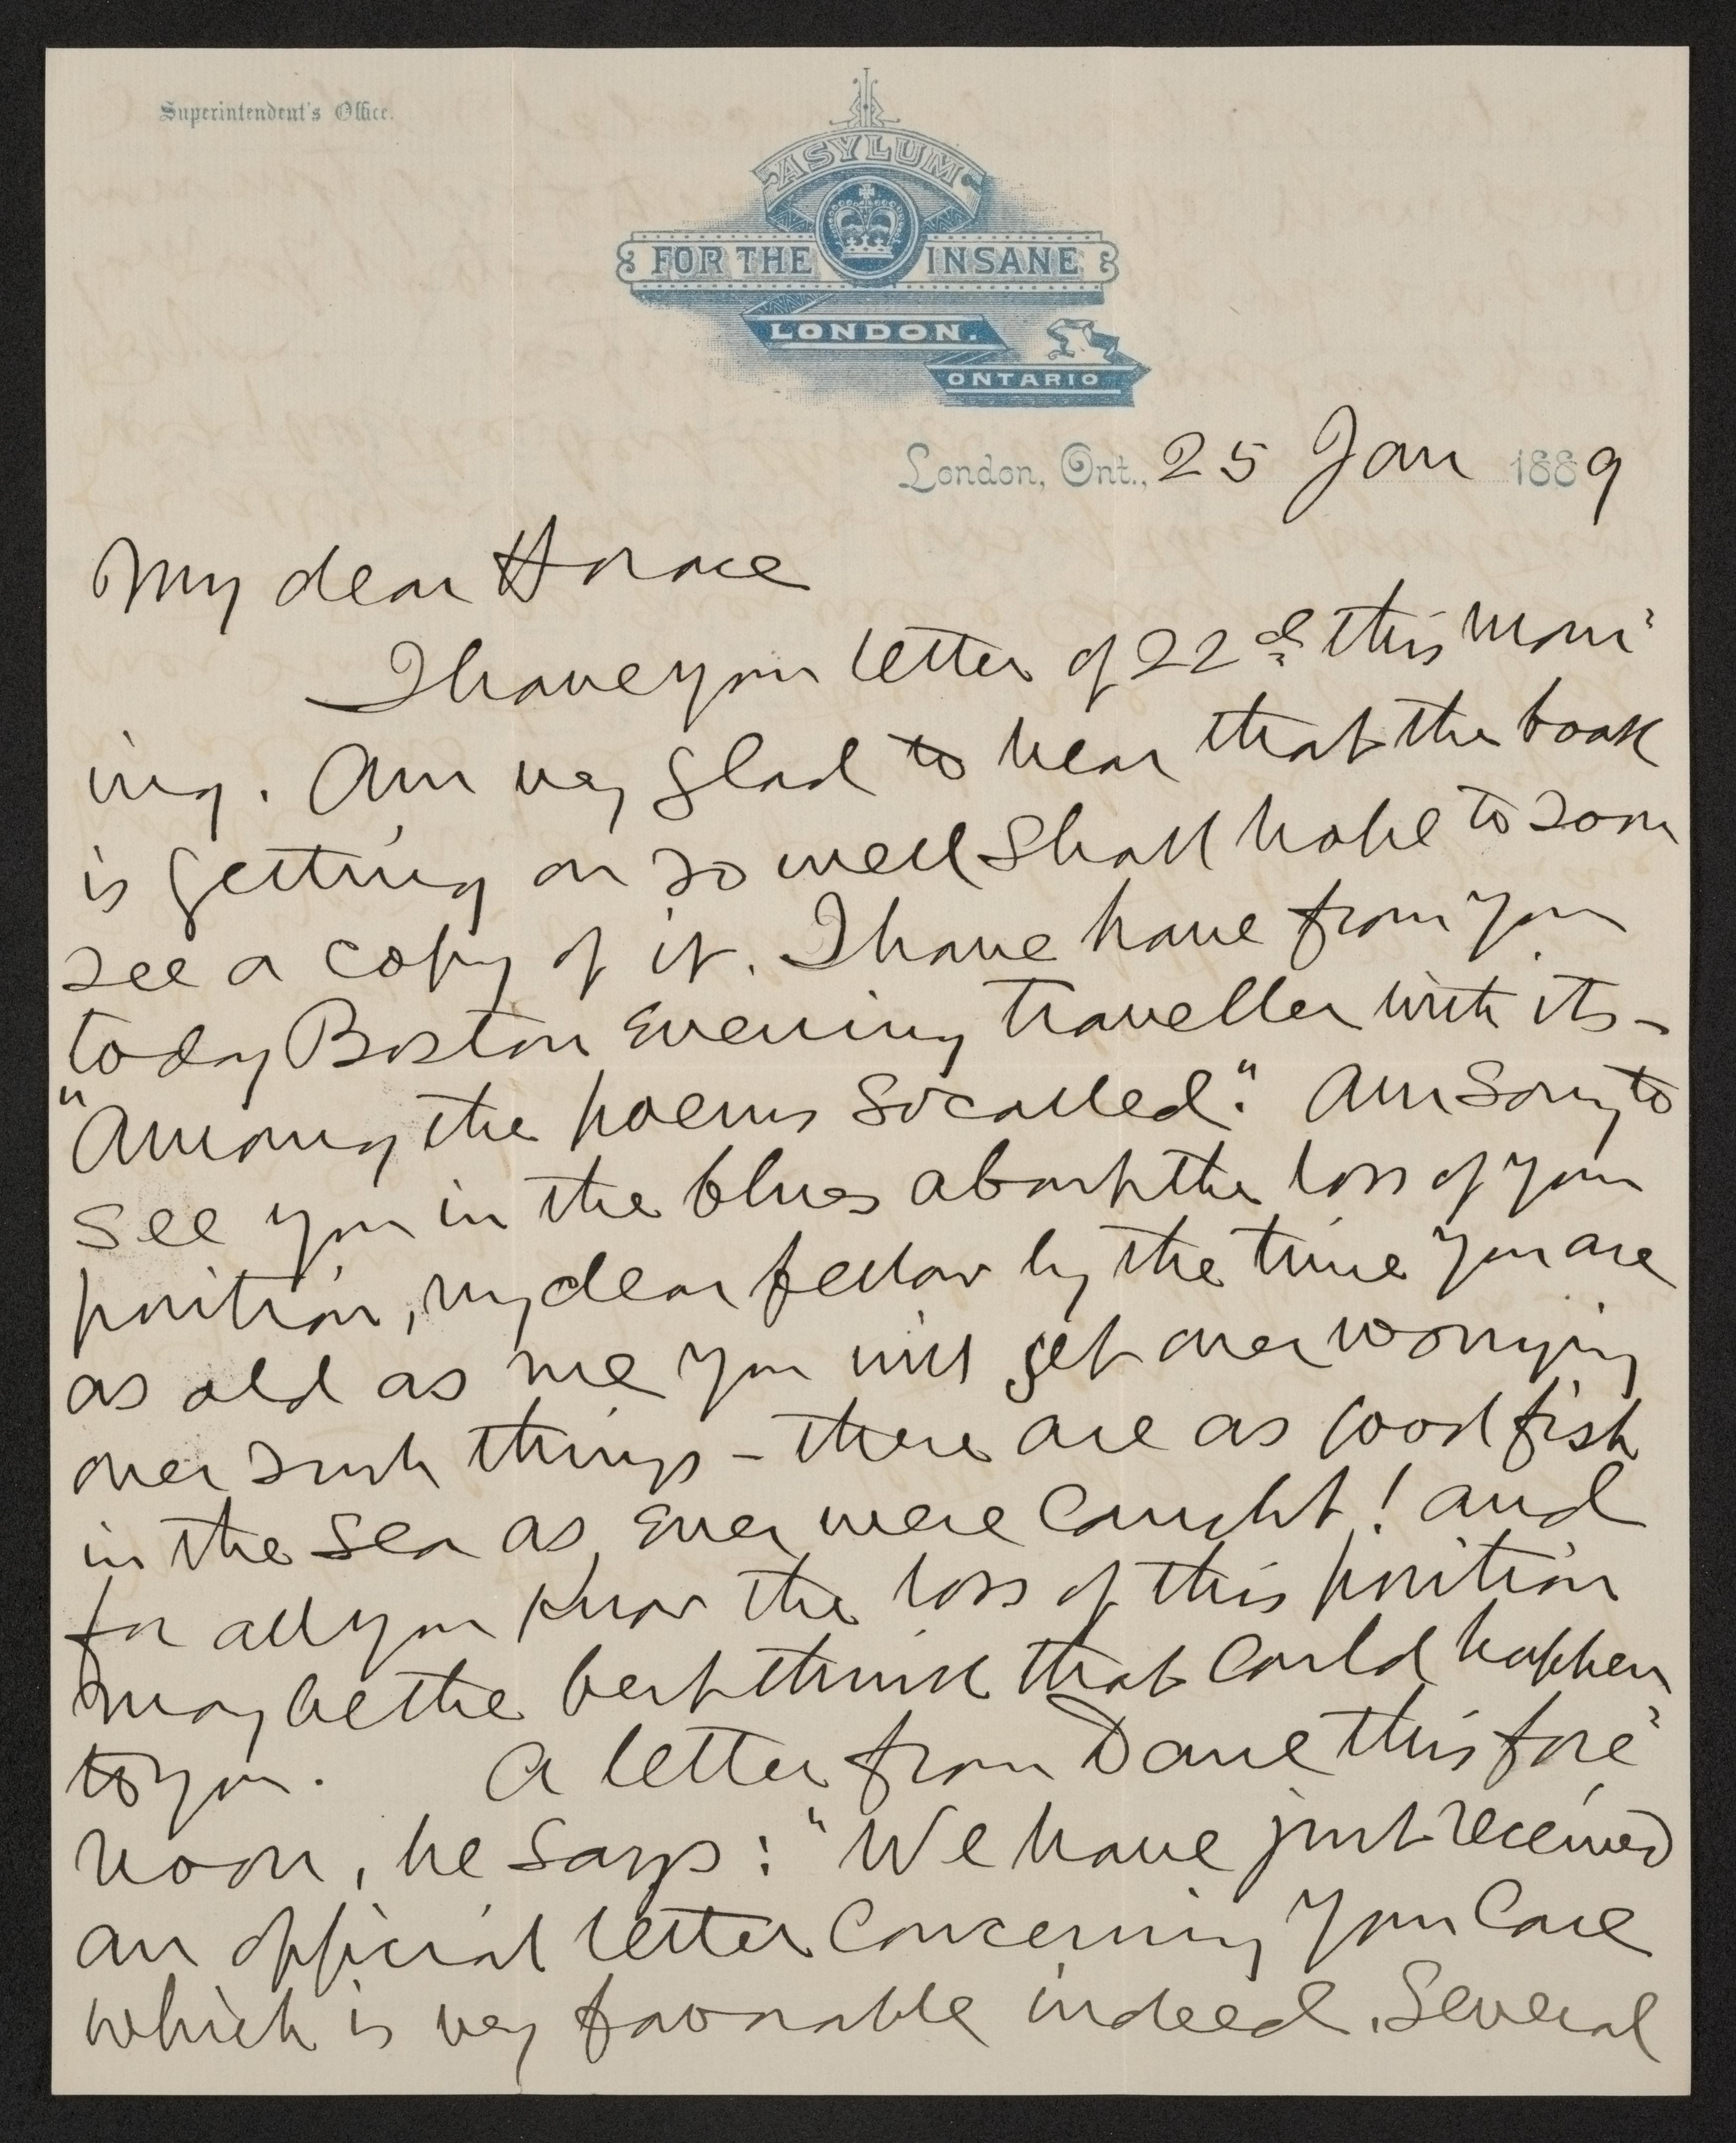 Superintendent's Office.
ASYLUM
FOR THE INSANE
LONDON.
ONTARIO
London, Ont., 25 Jan 1889
My dear Horace
I have your letter of 22d this morn-
ing. Am very glad to hear that the book
is getting on so well shall hope to soon
see a copy of it. I have have from you
today Boston Evening Traveller with its -
"Among the poems so called". Am sorry to
see you in the blues about the loss of your
position, my dear fellow by the time you are
as old as me you will get over worrying
over such things - there are as good fish
in the sea as ever were caught! and
for all you know the loss of this position
may be the best think that could happen
to you. A letter from Dave this fore-
noon, he says: "We have just received
an official letter concerning your Case
which is very favorable indeed. Several